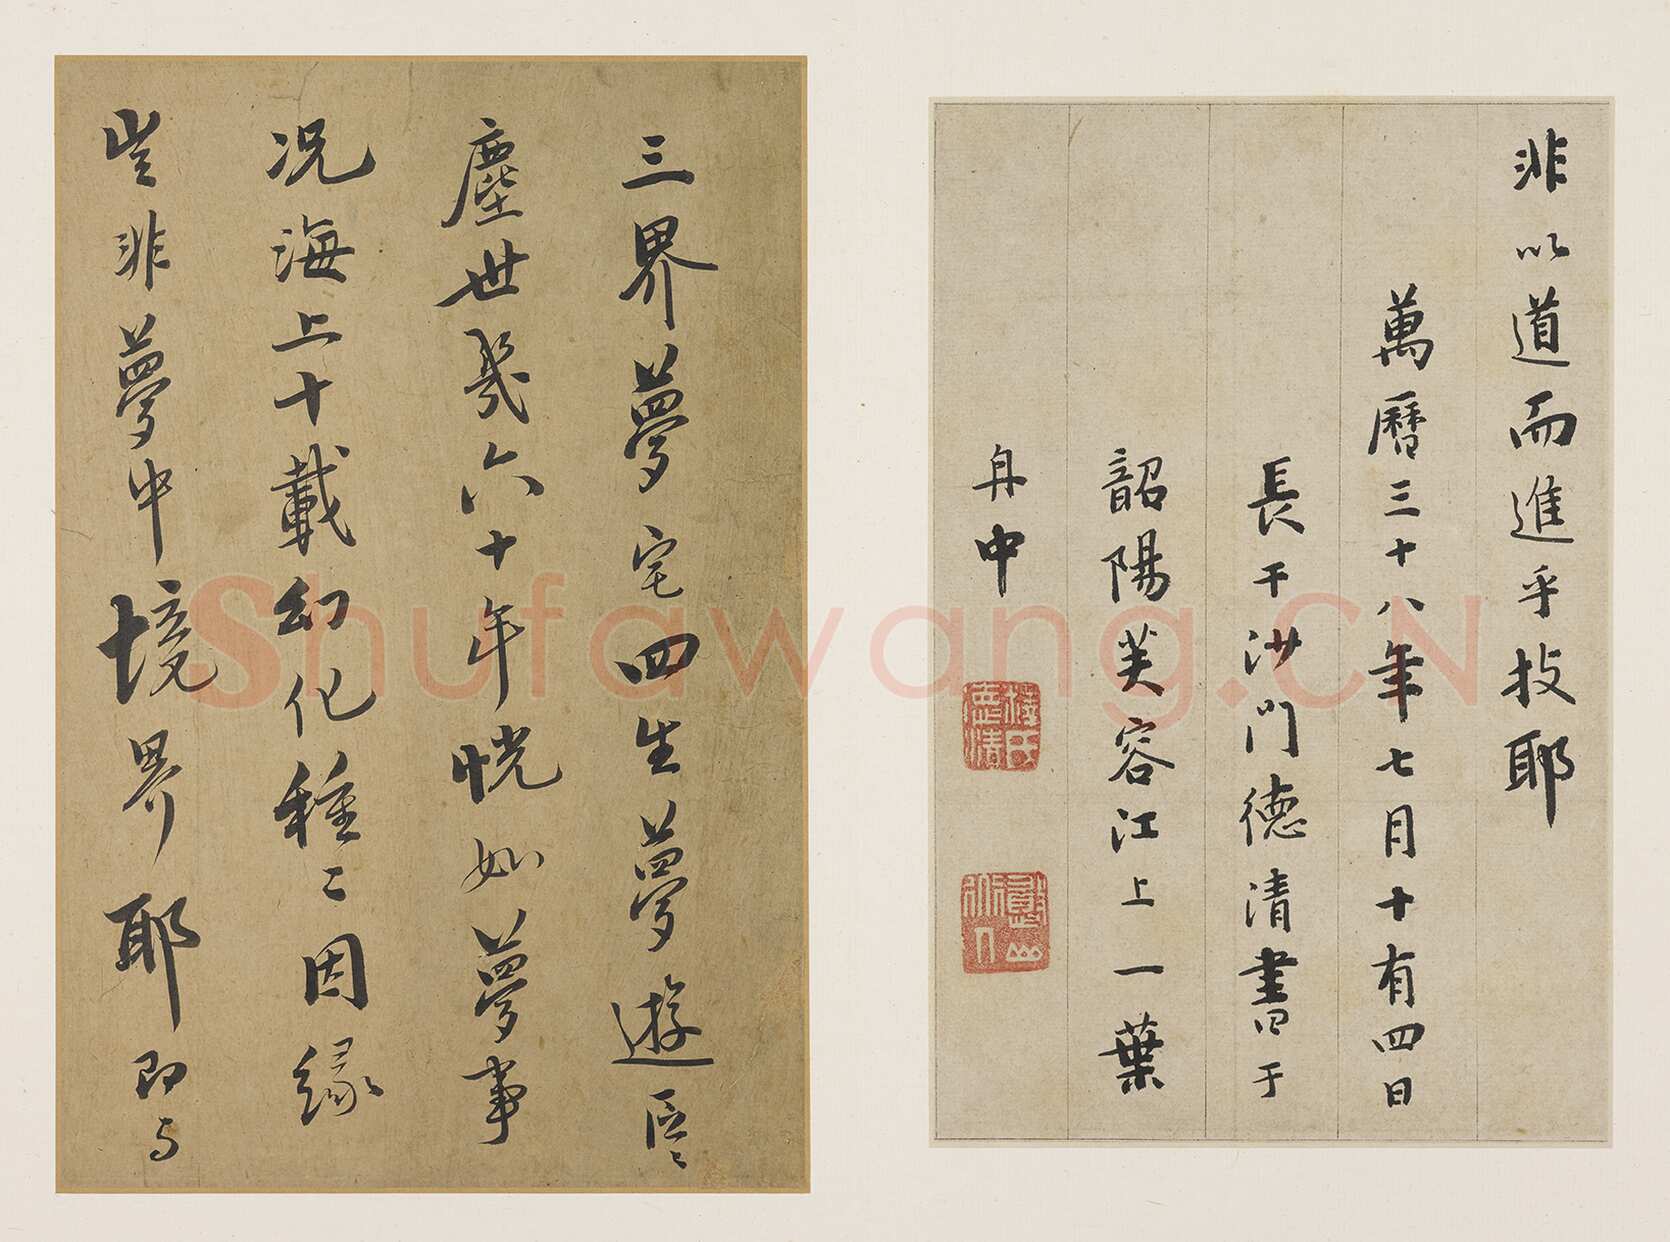 非以道而進乎技耶
萬曆三十八年七月十有四日
長干沙門德清書于
韶陽芙容江上一葉
舟中
釋氏德清
憨山
三界夢宅四生夢遊區〻
塵世幾六十年恍如夢事
况海上十載幻化種〻因緣
豈非夢中境界耶即与
Shufawang.CN